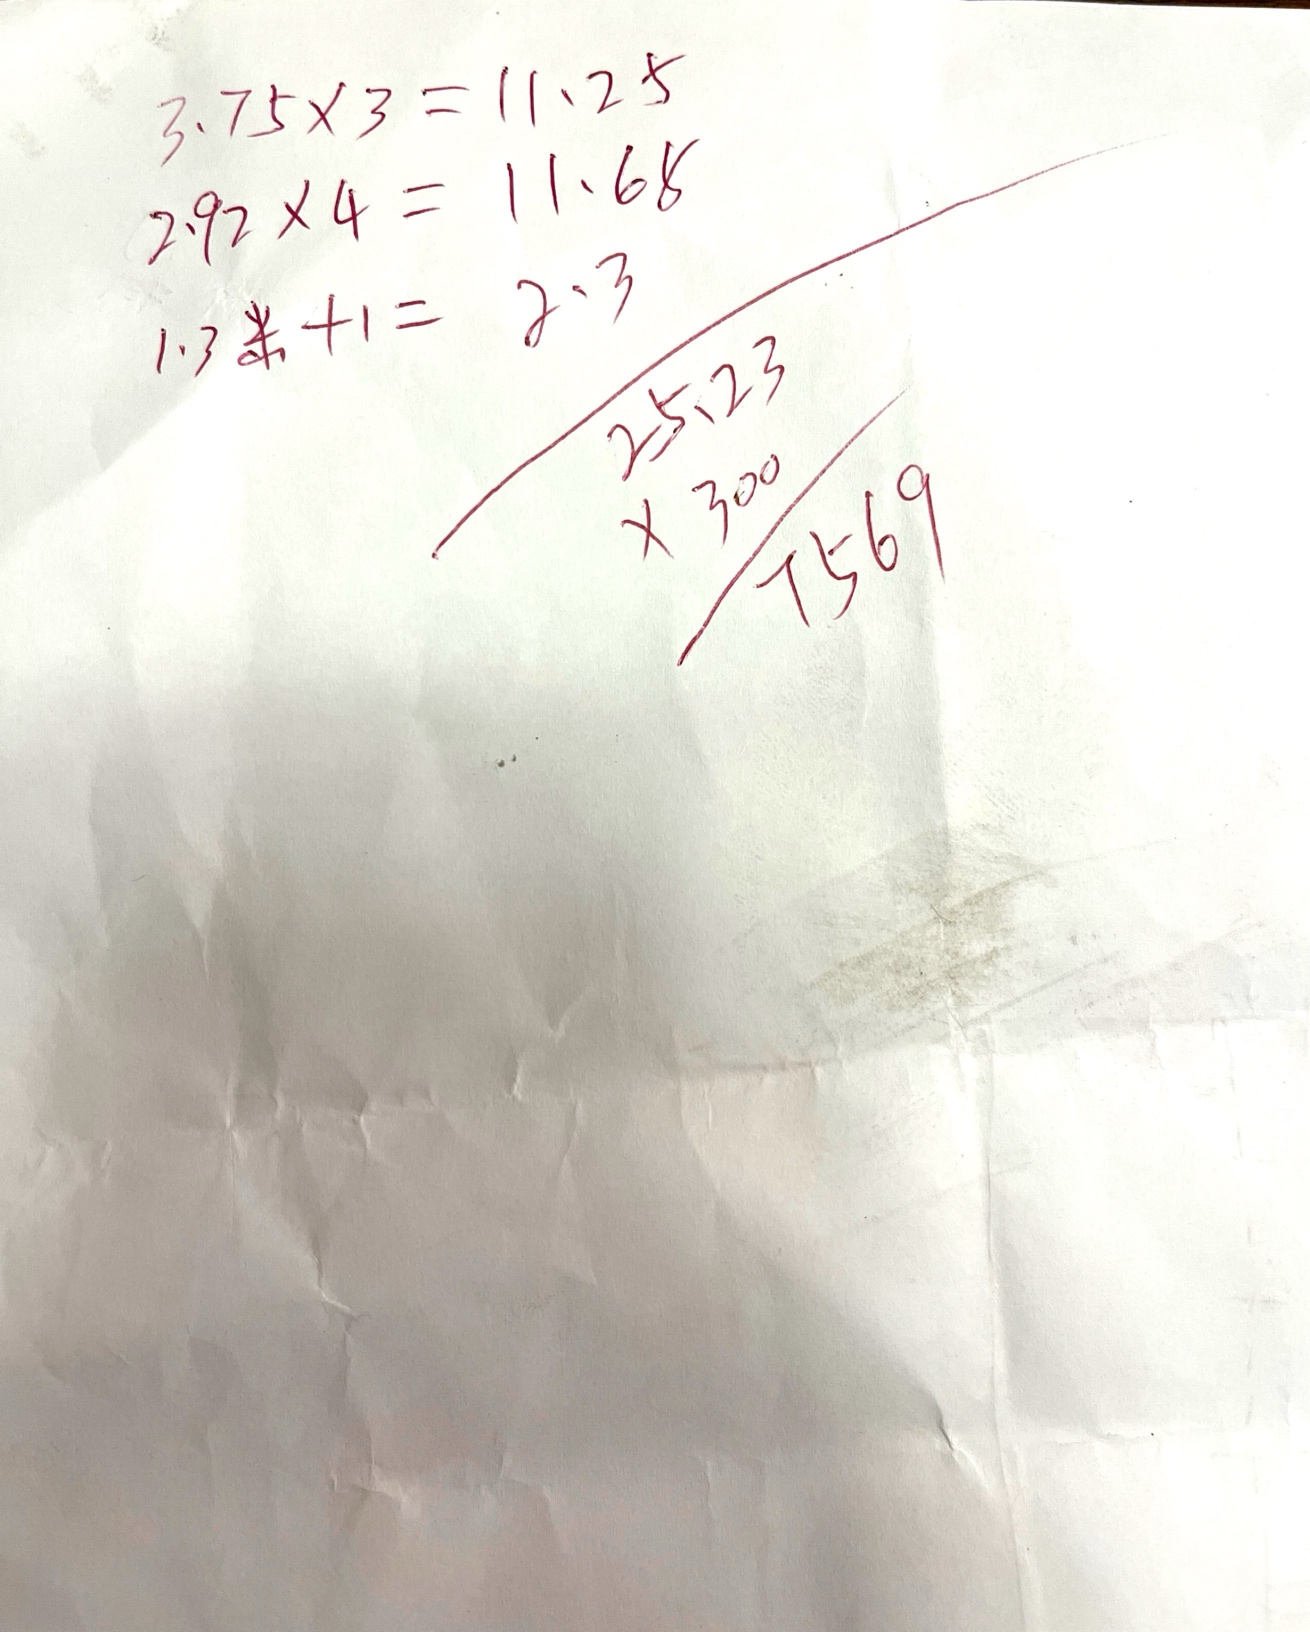 3.75×3=11.25
2.92×4=11.68
1.3米+1=2.3
25.23
×300
7569